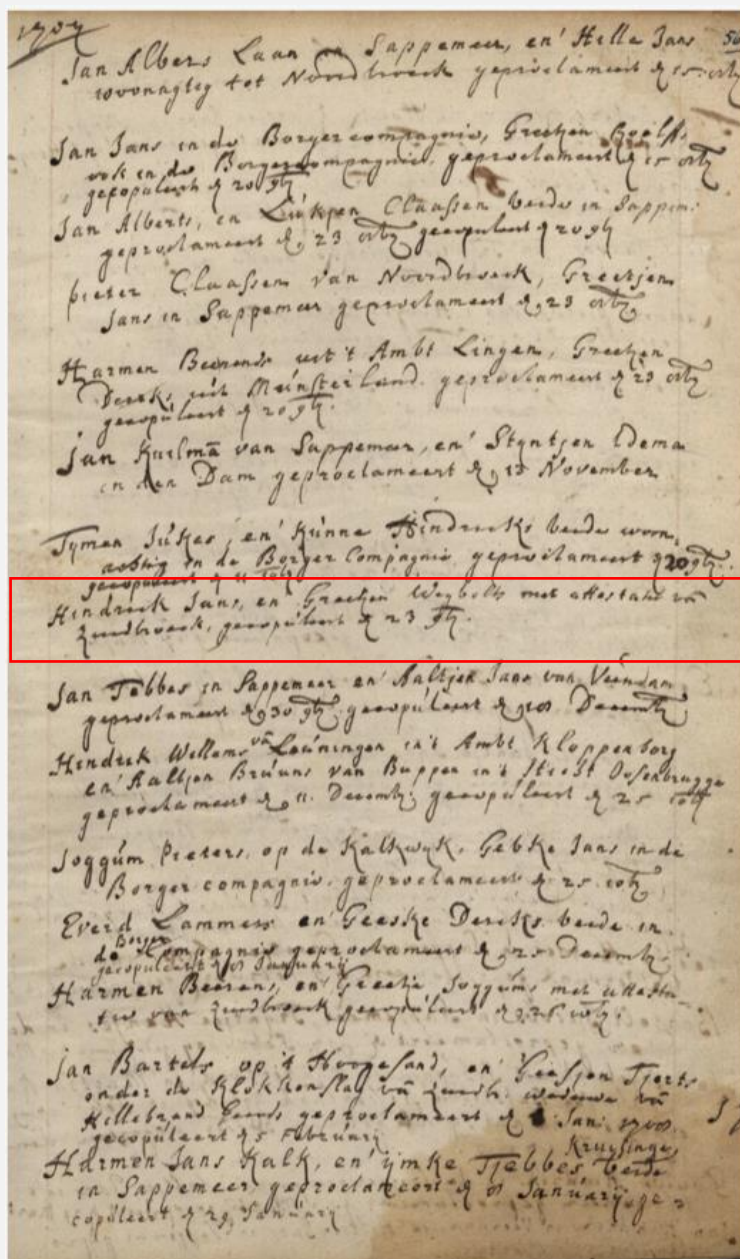 1707
Jan Albers Laan in Sappemeer, en' Hille Jans
woonagtig tot Noordbroeck geproclameert d 15
Jan Jans in de Borgercompagnie, Greetjen Roelfs
ook in de Borgercompagnie, geproclameert d 15
gecopuleert d 20 9b
Jan Alberts, en Claassen beide in Sappem:
geproclameert d, 23 gecopuleert d 20 9b
pieter Claassen van Noordbroeck, Greetjen
Jans in Sappemeer geproclameert d, 23
Harmen Beerends uit 't Ambt Lingen, Greetjen
Dercks uit Munsterland. geproclameert d 23
gecopuleert d 20 9b
Jan van Sappemeer, en' Styntjen Edema
in den Dam geproclameert d, 13 November
Tymen en' Kunne Hindricks beide woon,
achtig in de Borger Compagnie geproclameert d 20 9b
gecopuleert d 11
Hindrick Jans, en Greetjen met attestatie van
Zuidbroeck, gecopuleert d 23
Jan Tebbes in Sappemeer en' Aaltjen Jans van Veendam
geproclameert d, 30 9b gecopuleert d Decemb
Hindrik Willems van Leuningen in't Ambt Kloppenborg
en' Aaltjen Bruuns van Buppen in't Sticht Ossenbrugge
geproclameert d, 11. Decemb: gecopuleert d 25
Joggum Pieters, op de Kalkwyk, Gebke Jans in de
Borger compagnie. geproclameert d. 25
Everd Lammers en' Geeske Dercks beide in
de Borger Compagnie geproclameert d, 25 Decemb
gecopuleert d Januarij
Harmen Beerens, en' Greetje Joggums met attesta-
tie van Zuidbroeck gecopuleert d
Jan Bartels op 't Hoogesand, en' Geesjen Tjerts
onder de Klokkenslag van Zuidb. weduwe van
Hillebrand geproclameert d Jan:
gecopuleert d 5 Februarij
Kruysinga
Harmen Jans Kalk, en' ijmke Tjebbes beide
in Sappemeer, geproclameert d Januarij, ge=
copuleert d 29 Januarij